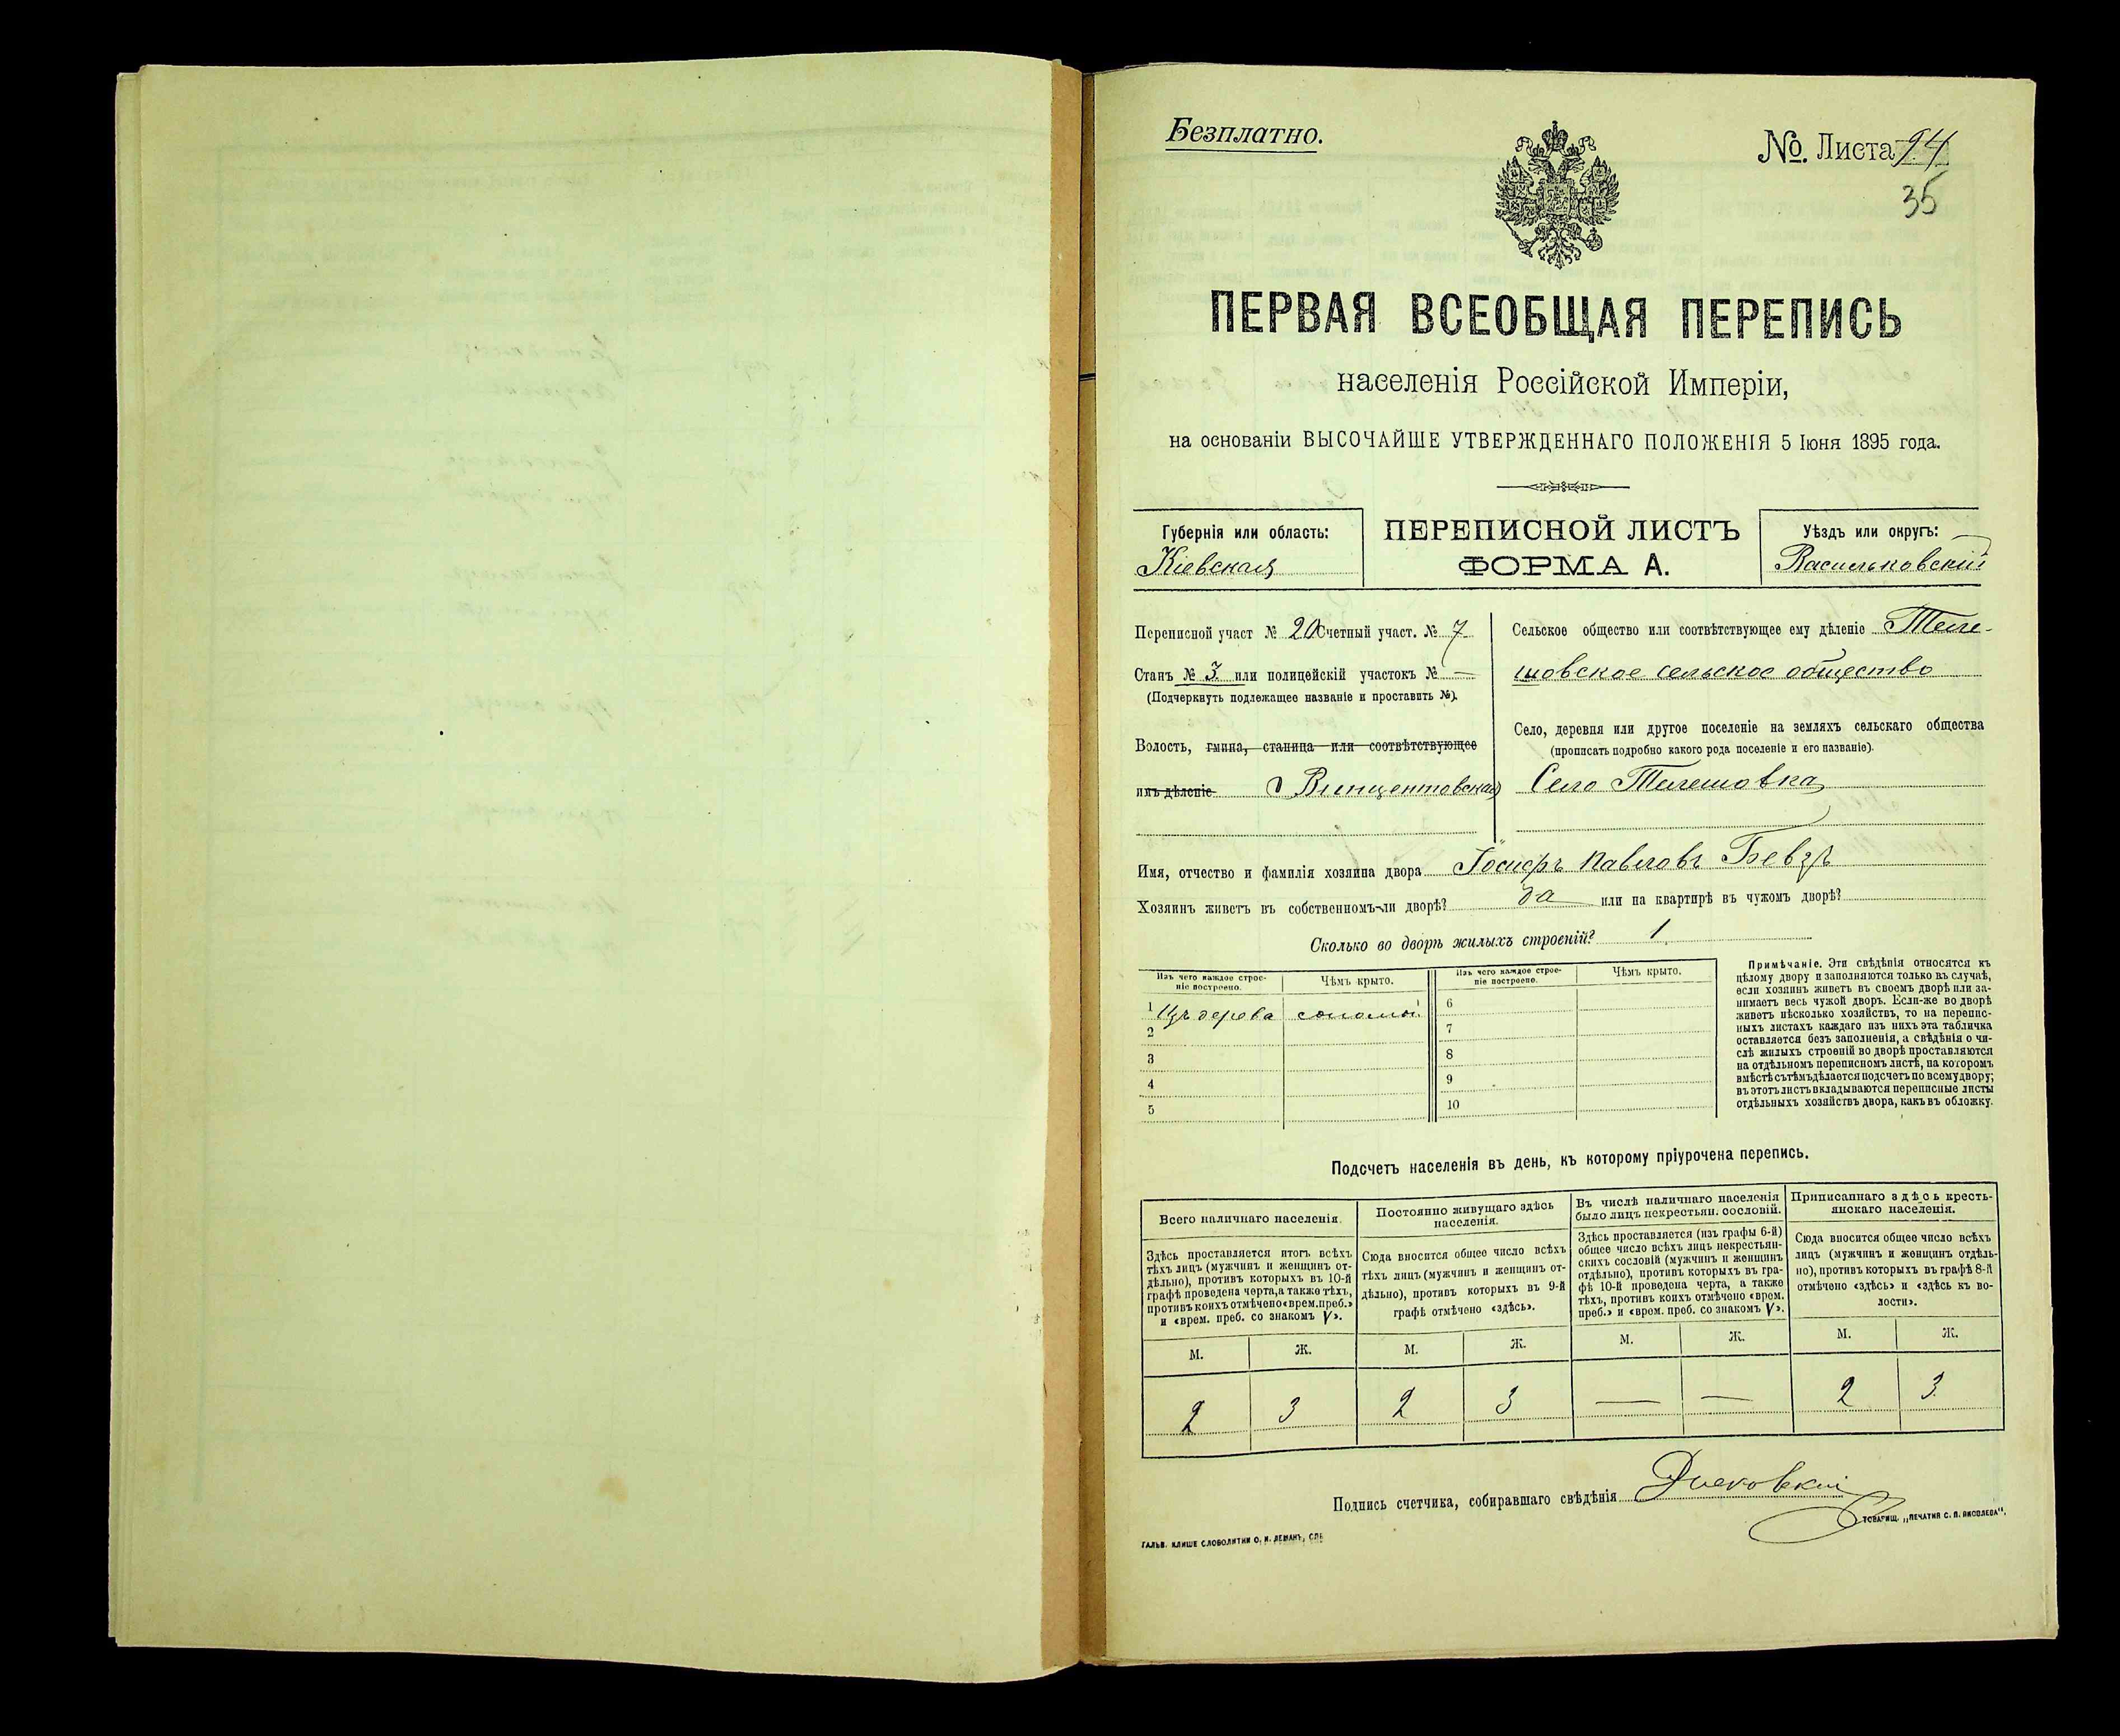 Безплатно.
№. Листа 94
35
ПЕРВАЯ ВСЕОБЩАЯ ПЕРЕПИСЬ
населенія Россійской Имперіи,
на основаніи ВЫСОЧАЙШЕ УТВЕРЖДЕННАГО ПОЛОЖЕНІЯ 5 Іюня 1895 года.
Губернія или область:
Кіевская
ПЕРЕПИСНОЙ ЛИСТЪ
ФОРМА А.
Уѣздъ или округъ:
Васильковскій
Переписной участ № 20 Счетный участ. № 7
Станъ № 3 или полицейскій участокъ № —
(Подчеркнуть подлежащее названіе и проставить №).
Волость, гмина, станица или соотвѣтствующее
имъ дѣленіе Винцентовская
Сельское общество или соотвѣтствующее ему дѣленіе Теле-
шовское сельское общество
Село, деревня или другое поселеніе на земляхъ сельскаго общества
(прописать подробно какого рода поселеніе и его названіе).
Село Телешовка
Имя, отчество и фамилія хозяина двора Іосифъ Павловъ Бевзъ
Хозяинъ живетъ въ собственномъ-ли дворѣ? да или на квартирѣ въ чужомъ дворѣ?
Сколько во дворѣ жилыхъ строеній? 1
Изъ чего каждое строе-
ніе построено.
Чѣмъ крыто.
1 Изъ дерева соломы
2
3
4
5
Изъ чего каждое строе-
ніе построено.
Чѣмъ крыто.
6
7
8
9
10
Примѣчаніе. Эти свѣдѣнія относятся къ
цѣлому двору и заполняются только въ случаѣ,
если хозяинъ живетъ въ своемъ дворѣ или за-
нимаетъ весь чужой дворъ. Если-же во дворѣ
живетъ нѣсколько хозяйствъ, то на перепис-
ныхъ листахъ каждаго изъ нихъ эта табличка
оставляется безъ заполненія, а свѣдѣнія о чи-
слѣ жилыхъ строеній во дворѣ проставляются
на отдѣльномъ переписномъ листѣ, на которомъ
вмѣстѣ съ тѣмъ дѣлается подсчетъ по всему двору;
въ этотъ листъ вкладываются переписные листы
отдѣльныхъ хозяйствъ двора, какъ въ обложку.
Подсчетъ населенія въ день, къ которому пріурочена перепись.
Всего наличнаго населенія.
Здѣсь проставляется итогъ всѣхъ
тѣхъ лицъ (мужчинъ и женщинъ от-
дѣльно), противъ которыхъ въ 10-й
графѣ проведена черта, а также тѣхъ,
противъ коихъ отмѣчено «врем. преб.»
и «врем. преб. со знакомъ V».
М. Ж.
2 3
Постоянно живущаго здѣсь
населенія.
Сюда вносится общее число всѣхъ
тѣхъ лицъ (мужчинъ и женщинъ от-
дѣльно), противъ которыхъ въ 9-й
графѣ отмѣчено «здѣсь».
М. Ж.
2 3
Въ числѣ наличнаго населенія
было лицъ некрестьян. сословій.
Здѣсь проставляется (изъ графы 6-й)
общее число всѣхъ лицъ некрестьян-
скихъ сословій (мужчинъ и женщинъ
отдѣльно), противъ которыхъ въ гра-
фѣ 10-й проведена черта, а также
тѣхъ, противъ коихъ отмѣчено «врем.
преб.» и «врем. преб. со знакомъ V».
М. Ж.
— —
Приписаннаго здѣсь кресть-
янскаго населенія.
Сюда вносится общее число всѣхъ
лицъ (мужчинъ и женщинъ отдѣль-
но), противъ которыхъ въ графѣ 8-й
отмѣчено «здѣсь» и «здѣсь къ во-
лости».
М. Ж.
2 3
Подпись счетчика, собиравшаго свѣдѣнія
ГАЛЬВ. КЛИШЕ СЛОВОЛИТНИ О. И. ЛЕМАНЪ, СПБ
ТОВАРИЩ. „ПЕЧАТНЯ С. П. ЯКОВЛЕВА".